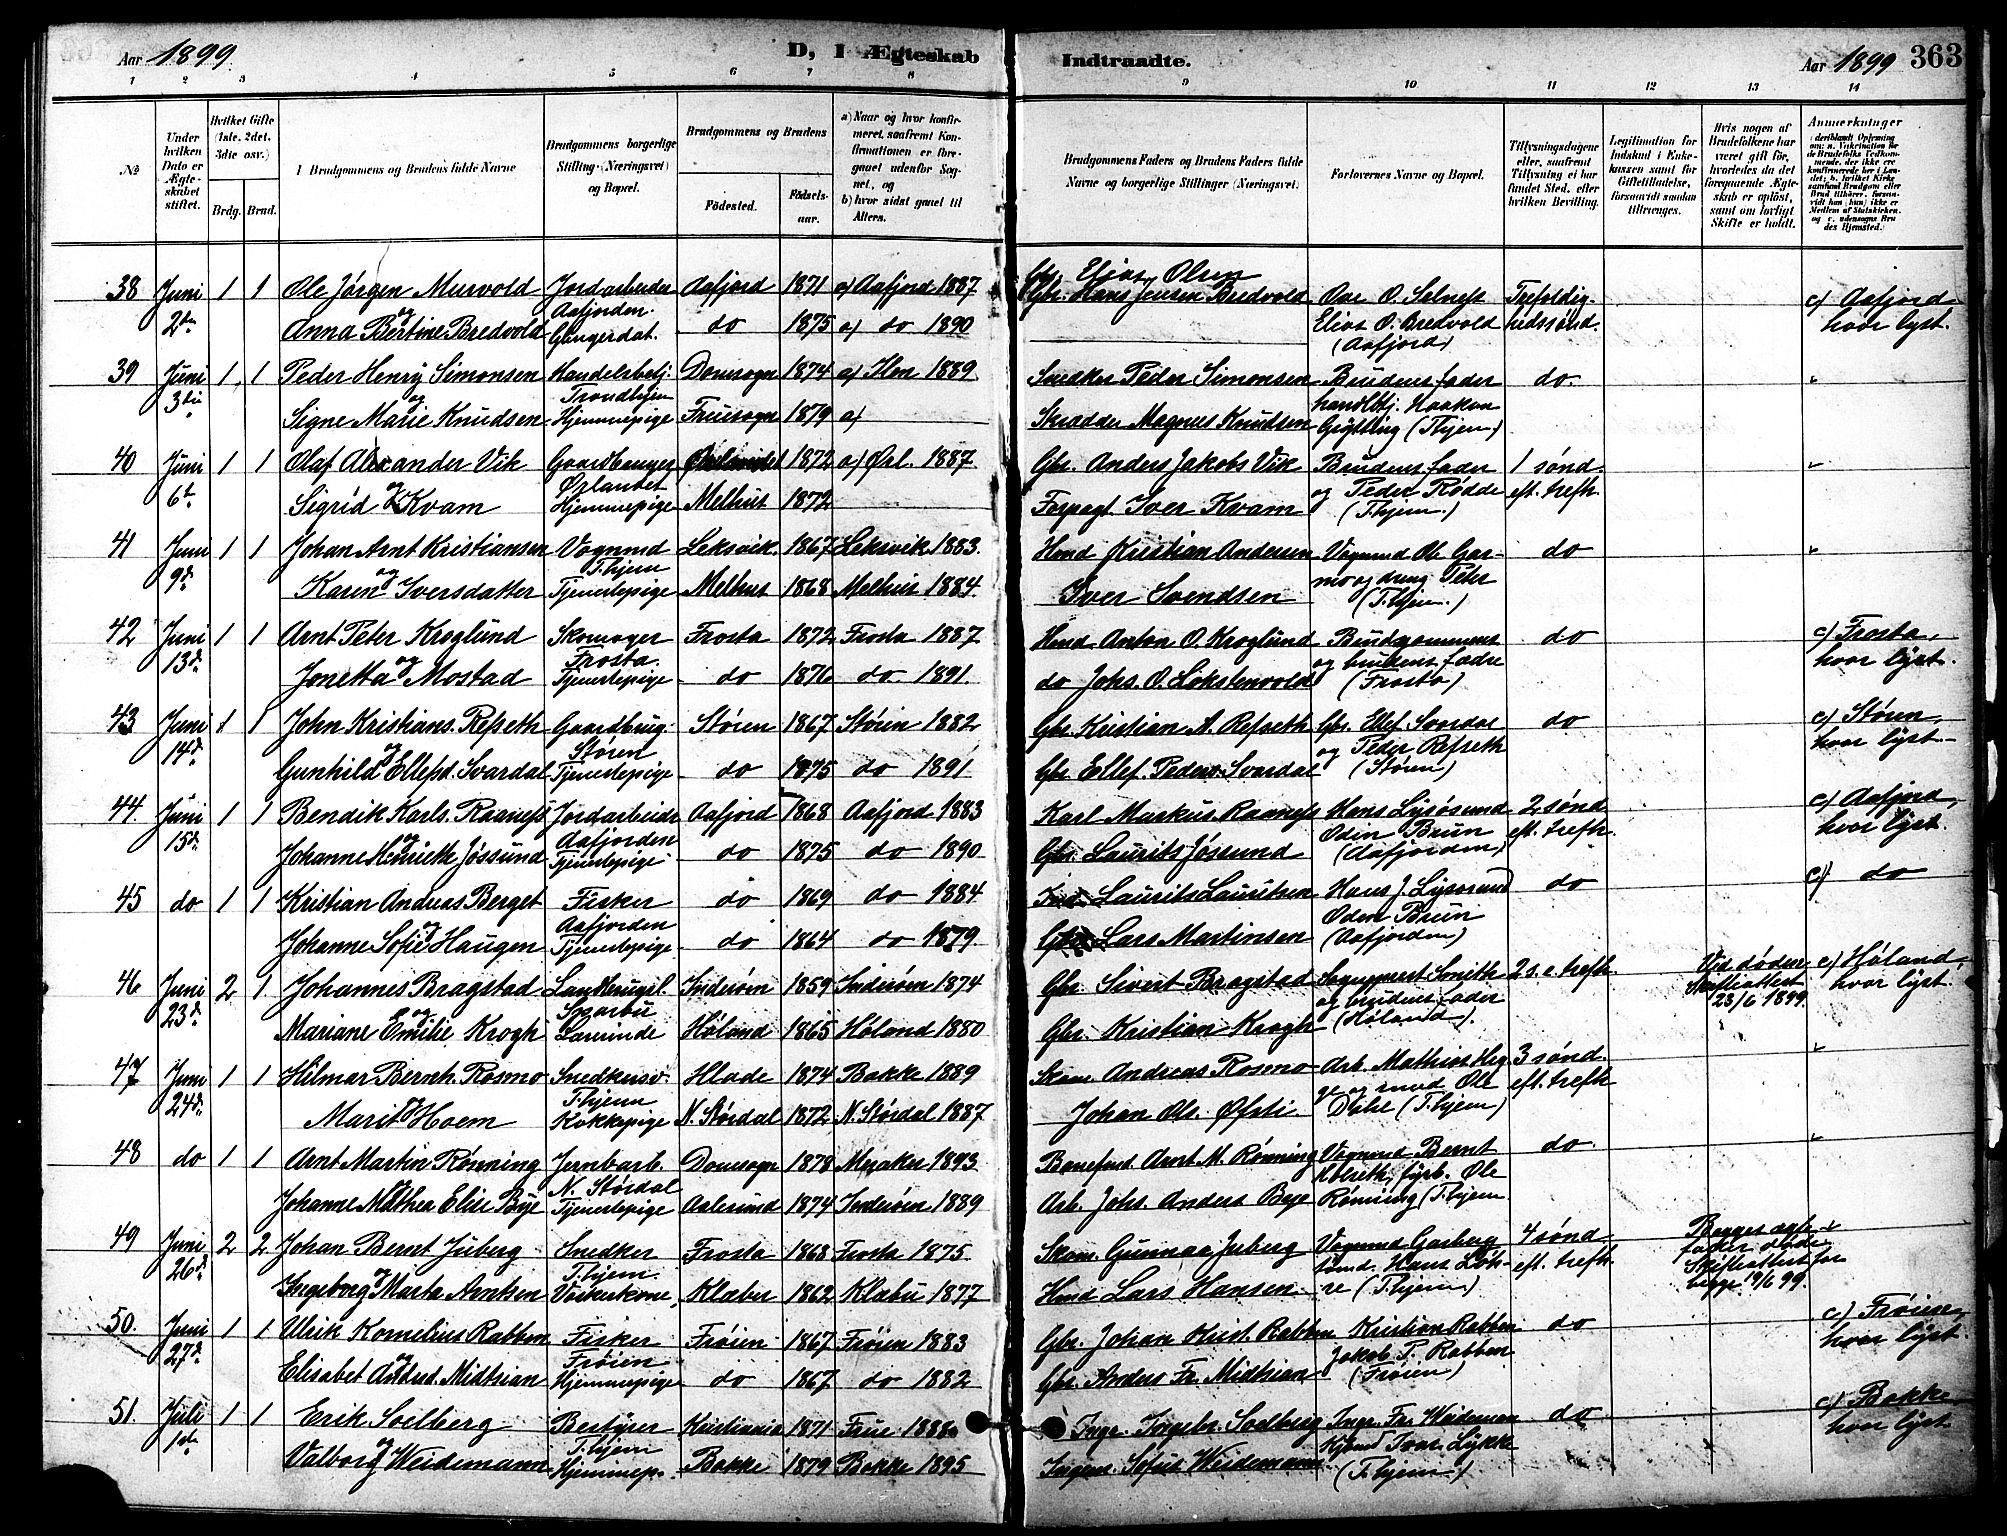 Aar 1899.
D, 1 Ægteskab
Indtraadte.
Aar 1899
363
1 2 3 4 5 6 7 8 9 10 11 12 13 14
№
Under hvilken Dato er Ægteskabet stiftet.
Hvilket Gifte (1ste, 2det, 3die osv.)
Brdg. Brud.
1 Brudgommens og Brudens fulde Navne
Brudgommens borgerlige Stilling (Næringsvei) og Bopæl.
Brudgommens og Brudens
Födested. Födselsaar.
a) Naar og hvor konfirmeret, saafremt Konfirmationen er foregaaet udenfor Sognet, og
b) hvor sidst gaaet til Alters.
Brudgommens Faders og Brudens Faders fulde Navne og borgerlige Stillinger (Næringsvei).
Forlovernes Navne og Bopæl.
Tillysningsdagene eller, saafremt Tillysning ei har fundet Sted, efter hvilken Bevilling.
Legitimation for Indskud i Enkekassen samt for Giftetilladelse, forsaavidt saadan tiltrænges.
Hvis nogen af Brudefolkene har været gift för, hvorledes da det foregaaende Ægteskab er oplöst, samt om lovligt Skifte er holdt.
Anmerkninger
38 Juni 2den 1 1 Ole Jørgen Murvold Jordarbeider Aafjord 1871 a) Aafjord 1887 Gbr. Elias Olsen Ove O. Selness Trefoldighedssønd. c) Aafjord hvor lyst.
og Anna Bertine Bredvold Aafjorden. do 1875 a) do 1890 Gbr. Hans Jensen Bredvold Elias O. Bredvold (Aafjord)
39 Juni 3die 1 1 Peder Henry Simonsen Handelsbetj. Domsogn 1874 a) Ilen 1889 Snedker Peder Simonsen Brudens fader do.
og Signe Marie Knudsen Trondhjem Hjemmepige Fruesogn 1879 a) Skrædder Magnus Knudsen handlbtj. Haakon (Thjem.)
40 Juni 6te 1 1 Olaf Alexander Vik Gaardbruger Ørlandet 1872 a) Ørl. 1887 Gbr. Anders Jakobs Vik Brudens fader 1 sønd. eft. trefh.
og Sigrid Kvam Ørlandet Hjemmepige Melhus 1872 Forpagt. Iver Kvam og Peder Rødde (T.hjem.)
41 Juni 9de 1 1 Johan Arnt Kristiansen Vognmd Leksvik. 1867 Leksvik 1883. Hmd Kristian Andersen Vognmd Ole Garmo og dreng Peter do
og Karen Iversdatter T.hjem Tjenestepige Melhus 1868 Melhus 1884. Iver Svendsen (T.hjem.)
42 Juni 13de 1 1 Arnt Peter Kroglund Skomager Frosta 1872 Frosta 1887 Hmd Anton O. Kroglund Brudgommens do c) Frosta, hvor lyst.
og Jonetta Mostad Frosta. Tjenestepige do 1876 do 1891. do Johs. O. Lokstenvold og brudens fædre (Frosta)
43 Juni 14de 1 1 John Kristians. Refseth Gaardbrug. Støren 1867 Støren 1882 Gbr. Kristian A. Refseth Gbr. Ellef. Svardal do c) Støren, hvor lyst.
og Gunhild Ellefsd. Svardal Støren Tjenestepige do 1875 do 1891 Gbr. Ellef. Peders. Svardal og Peder Refseth (Støren)
44. Juni 15de 1 1 Bendik Karls. Raaness Jordarbeider Aafjord 1868 Aafjord 1883 Karl Markus. Raaness Hans Lysøsund 2 sønd. eft. trefh. c) Aafjord, hvor lyst.
og Johanne Henriette Jøssund Aafjorden Tjenestepige do 1875 do 1890 Gbr. Laurits Jøssund Odin Brun (Aafjorden)
45 do 1 1 Kristian Andreas Berget Fisker do 1869 do 1884 Laurits Lauritsen Hans J. Lysøsund do c) do
og Johanne Sofie Haugen Aafjorden Tjenestepige do 1864 do 1879 Lars Martinsen Oden Brun (Aafjorden)
46 Juni 23de 2 1 Johannes Bragstad Inderøen 1859 Inderøen 1874 Gbr. Sivert Bragstad Smith 2 s. e. trefh. Ved døden Skifteattest 23/6 1899. c) Høland, hvor lyst.
og Mariane Emilie Krogh Sparbu Lærerinde Høland 1865 Høland 1880 Gbr. Kristian Krogh og brudens fader (Høland).
47 Juni 24de 1 1 Hilmar Bernh. Rosmo Snedkersv. Hlade 1874 Bakke 1889 Skom. Andreas Rosmo Arb. Mathias Hegge og smed Ole 3 sønd. eft. trefh
og Marit Hoem T.hjem Kokkepige N. Størdal 1872 N. Størdal 1887 Johan Ols. Øfsti (T.hjem)
48 do 1 1 Arnt Martin Rønning Jernbarb. Domsogn 1878 Meraker 1893 Banefmd Arnt M. Rønning Vognmd Bernt do.
og Johanne Mathea Elise Bye N. Størdal Tjenestepige Aalesund 1874 Inderøen 1889 Arb. Johs. Anders Bye fyrb. Ole Rønning (T.hjem
49 Juni 26de 2 2 Johan Bernt Juberg Snedker Frosta 1868 Frosta 1875. Skom. Gunnar Juberg Vognmd Garberg 4 sønd. eft. trefh. Begges ægtefæller døde Skifteattest for begge 19/6 99.
og Ingeborg Marta Arntsen T.hjem. Vaskerkone, Klæbu 1862 Klæbu 1877 Hmd Lars Hansen Hans (T.hjem)
50. Juni 27de 1 1 Ulrik Kornelius Rabben Fisker Frøien 1867 Frøien 1883 Gbr. Johan Krist. Rabben Kristian Rabben do c) Frøien, hvor lyst.
og Elisabet Midtsian Frøien Hjemmepige do 1867 do 1882 Gbr. Anders Fr. Midtsian Jakob P. Rabben (Frøien)
51. Juli 1ste 1 1 Erik Solberg Bestyrer Kristiania 1871 Frue 1888. Inge. Ingebr. Solberg Inge. Fr. Weideman do c) Bakke hvor lyst
og Valborg Weidemann T.hjem Hjemmep. Bakke 1879 Bakke 1895 Ingen. Weidemann Kjbmd Ivar Lykke (T.hjem.)